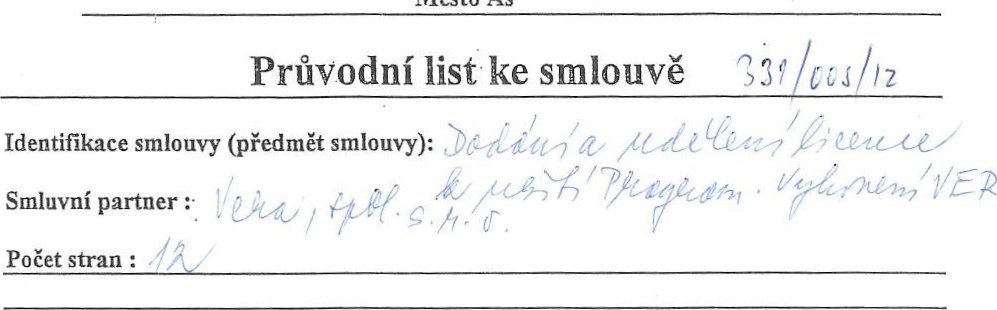 Město Aš
Průvodní list ke smlouvě 331/005/12
Identifikace smlouvy (předmět smlouvy): Dodání a udělení licence
k užití Program. vybavení VER
Smluvní partner : Vera, spol. s.r.o.
Počet stran : 12